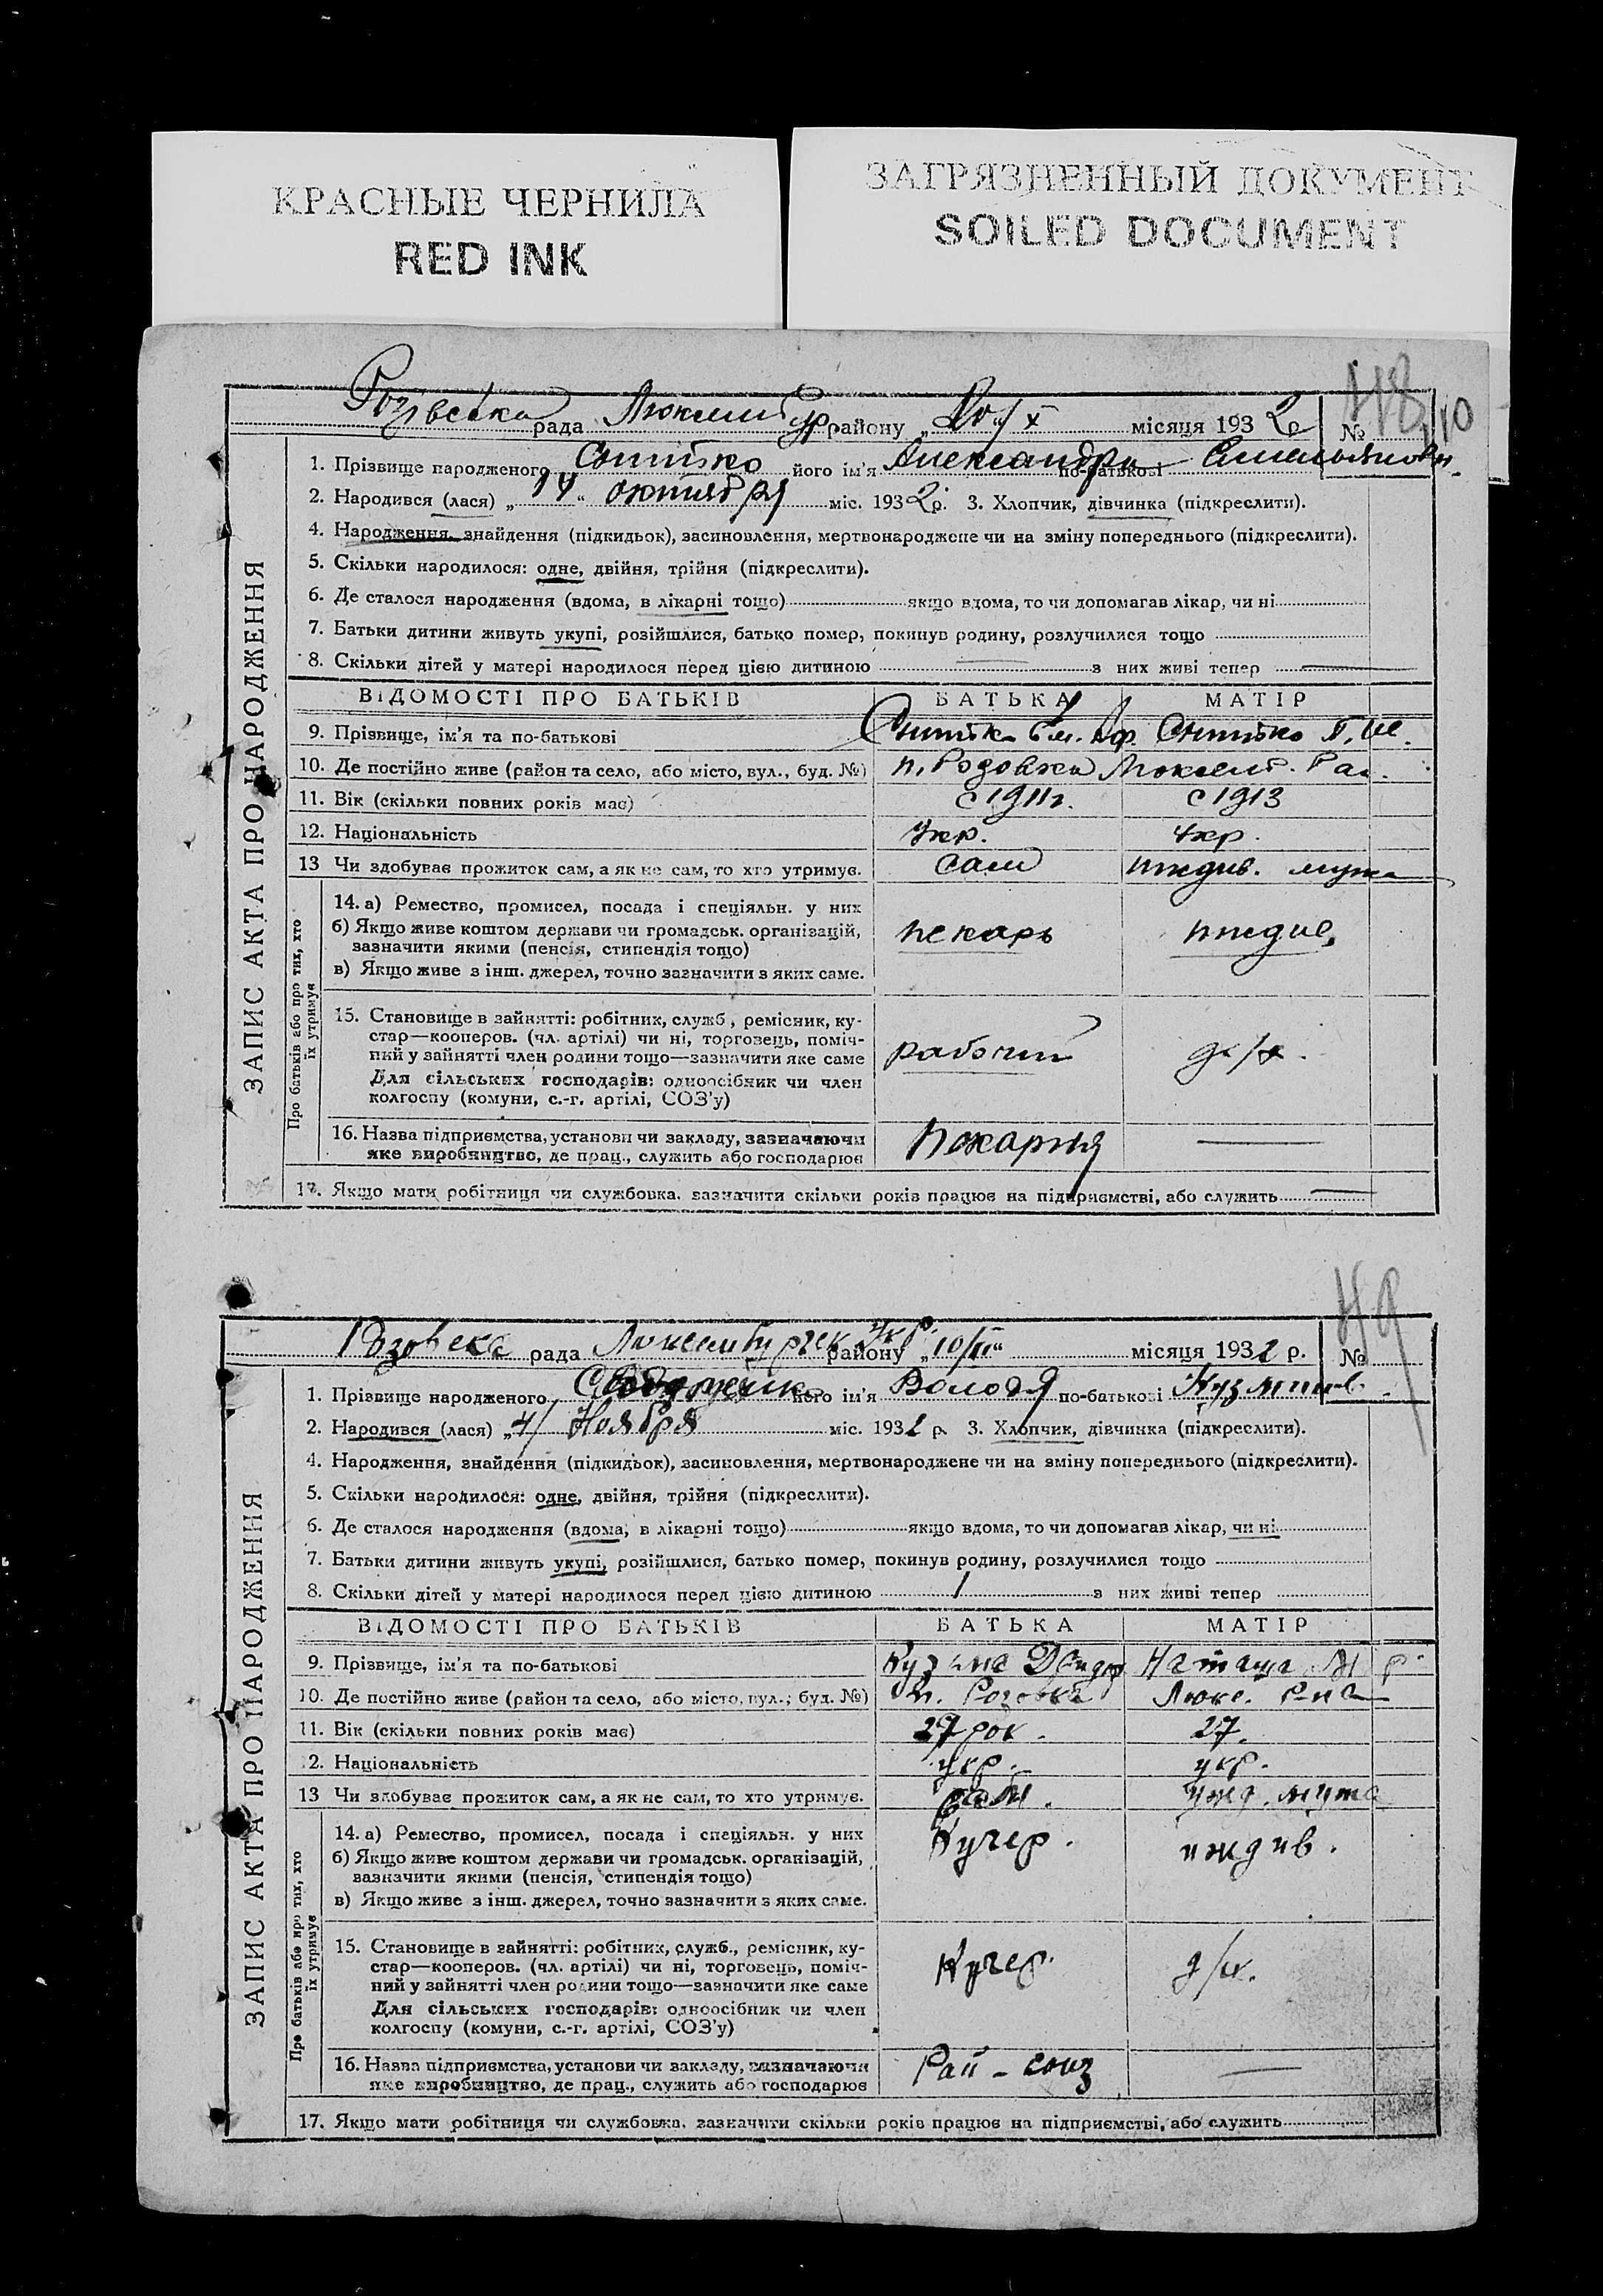 КРАСНЫЕ ЧЕРНИЛА
RED INK
ЗАГРЯЗНЕННЫЙ ДОКУМЕНТ
SOILED DOCUMENT
48
110
Розівська рада района „20/X місяця 1932 №
ЗАПИС АКТА ПРО НАРОДЖЕННЯ
1. Прізвище народженого Снитко його ім'я Александра по-батькові
2. Народився (лася) „14“ октября міс. 1932 р. 3. Хлопчик, дівчинка (підкреслити).
4. Народження, знайдення (підкидьок), засиновлення, мертвонароджене чи на зміну попереднього (підкреслити).
5. Скільки народилося: одне, двійня, трійня (підкреслити).
6. Де сталося народження (вдома, в лікарні тощо) якщо вдома, то чи допомагав лікар, чи ні
7. Батьки дитини живуть укупі, розійшлися, батько помер, покинув родину, розлучилися тощо
8. Скільки дітей у матері народилося перед цією дитиною — з них живі тепер —
ВІДОМОСТІ ПРО БАТЬКІВ БАТЬКА МАТІР
9. Прізвище, ім'я та по-батькові Снитко Ем. Снитко
10. Де постійно живе (район та село, або місто, вул., буд. №) п. Розовка
11. Вік (скільки повних років має) с 1911 г. с 1913
12. Національність Укр. Укр.
13 Чи здобуває прожиток сам, а як не сам, то хто утримує. сам иждив. мужа
Про батьків або про тих, хто їх утримує
14. а) Ремество, промисел, посада і спеціяльн. у них
б) Якщо живе коштом держави чи громадськ. організацій, пекарь иждив.
зазначити якими (пенсія, стипендія тощо)
в) Якщо живе з інш. джерел, точно зазначити з яких саме.
15. Становище в зайнятті: робітник, служб., ремісник, ку-
стар—кооперов. (чл. артілі) чи ні, торговець, поміч-
ний у зайнятті член родини тощо—зазначити яке саме рабочий д/х.
Для сільських господарів: одноосібник чи член
колгоспу (комуни, с.-г. артілі, СОЗ'у)
16. Назва підприємства, установи чи закладу, зазначаючи
яке виробництво, де прац., служить або господарює Пекарня —
17. Якщо мати робітниця чи службовка, зазначити скільки років працює на підприємстві, або служить —
49
Розовска рада району „10/II“ місяця 1932 р. №
ЗАПИС АКТА ПРО НАРОДЖЕННЯ
1. Прізвище народженого його ім'я Володя по-батькові
2. Народився (лася) „4/ Ноября міс. 1932 р. 3. Хлопчик, дівчинка (підкреслити).
4. Народження, знайдення (підкидьок), засиновлення, мертвонароджене чи на зміну попереднього (підкреслити).
5. Скільки народилося: одне, двійня, трійня (підкреслити).
6. Де сталося народження (вдома, в лікарні тощо) якщо вдома, то чи допомагав лікар, чи ні
7. Батьки дитини живуть укупі, розійшлися, батько помер, покинув родину, розлучилися тощо
8. Скільки дітей у матері народилося перед цією дитиною 1 з них живі тепер
ВІДОМОСТІ ПРО БАТЬКІВ БАТЬКА МАТІР
9. Прізвище, ім'я та по-батькові Кузьма Наташа
10. Де постійно живе (район та село, або місто, вул., буд. №) п. Розовка Люкс. р-на
11. Вік (скільки повних років має) 29 рок. 27.
12. Національність укр. укр.
13 Чи здобуває прожиток сам, а як не сам, то хто утримує. сам. ижд. мужа
Про батьків або про тих, хто їх утримує
14. а) Ремество, промисел, посада і спеціяльн. у них Кучер. иждив.
б) Якщо живе коштом держави чи громадськ. організацій,
зазначити якими (пенсія, стипендія тощо)
в) Якщо живе з інш. джерел, точно зазначити з яких саме.
15. Становище в зайнятті: робітник, служб., ремісник, ку-
стар—кооперов. (чл. артілі) чи ні, торговець, поміч- Кучер. д/х.
ний у зайнятті член родини тощо—зазначити яке саме
Для сільських господарів: одноосібник чи член
колгоспу (комуни, с.-г. артілі, СОЗ'у)
16. Назва підприємства, установи чи закладу, зазначаючи Рай-союз —
яке виробництво, де прац., служить або господарює
17. Якщо мати робітниця чи службовка, зазначити скільки років працює на підприємстві, або служить